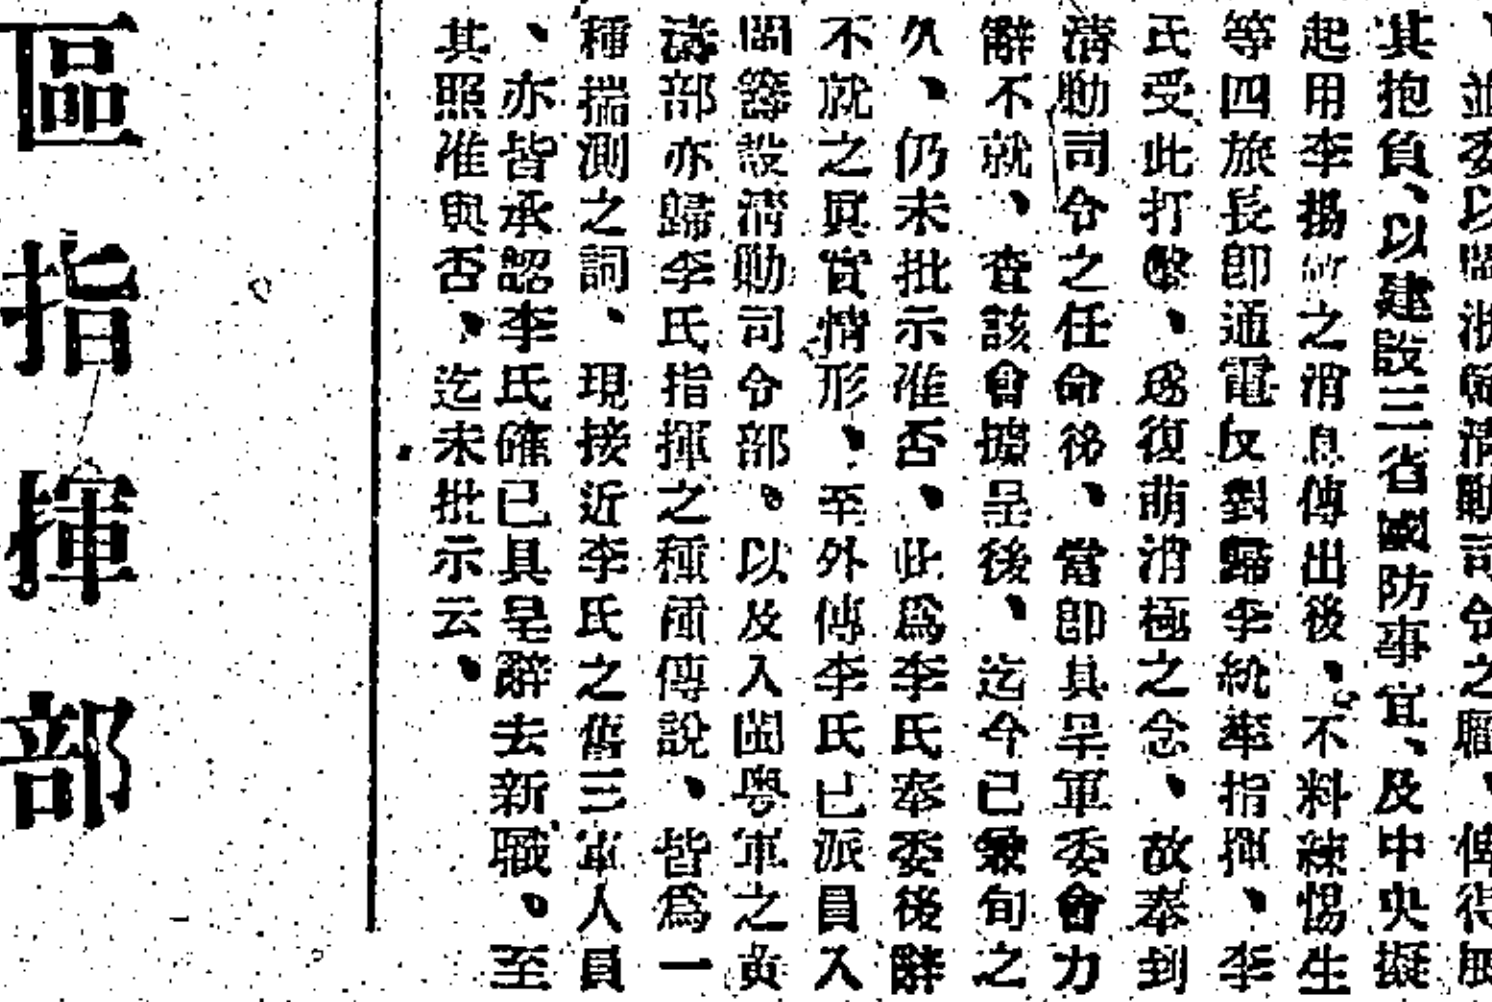 、並委以閩浙贛清勦司令之職、俾得展
其抱負、以建設三省國防事宜、及中央擬
起用李揚敬之消息傳出後、不料練惕生
等四旅長卽通電反對歸李統率指揮、李
氏受此打擊、爲復萌消極之念、故奉到
清勦司令之任命後、當卽具呈軍委會力
辭不就、查該會據呈後、迄今已兼旬之
久、仍未批示准否、此爲李氏奉委後辭
不就之眞實情形、至外傳李氏已派員入
閩籌設清勦司令部、以及入閩粵軍之黃
濤部亦歸李氏指揮之種種傳說、皆爲一
種揣測之詞、現接近李氏之舊三軍人員
、亦皆承認李氏確已具呈辭去新職、至
其照准與否、迄未批示云、
區指揮部